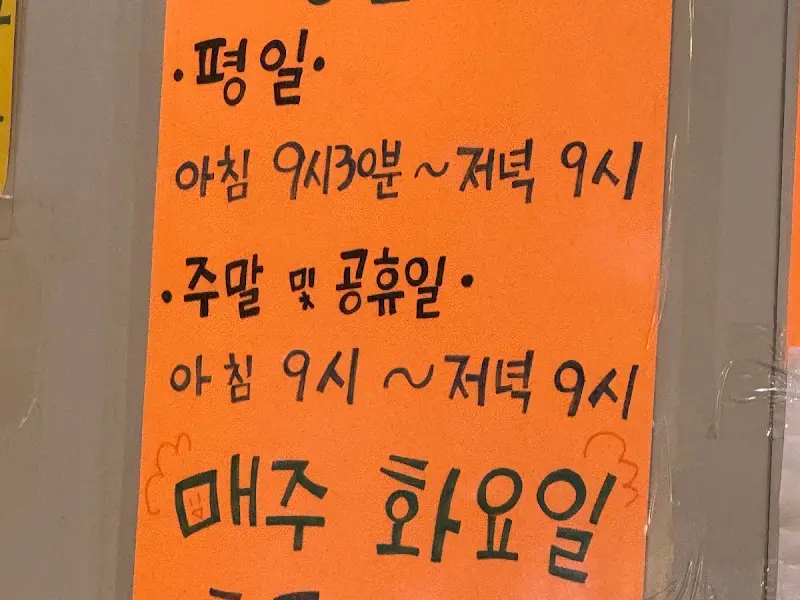 ·평일·
아침 9시30분 ~ 저녁 9시
·주말 및 공휴일·
아침 9시 ~ 저녁 9시
매주 화요일